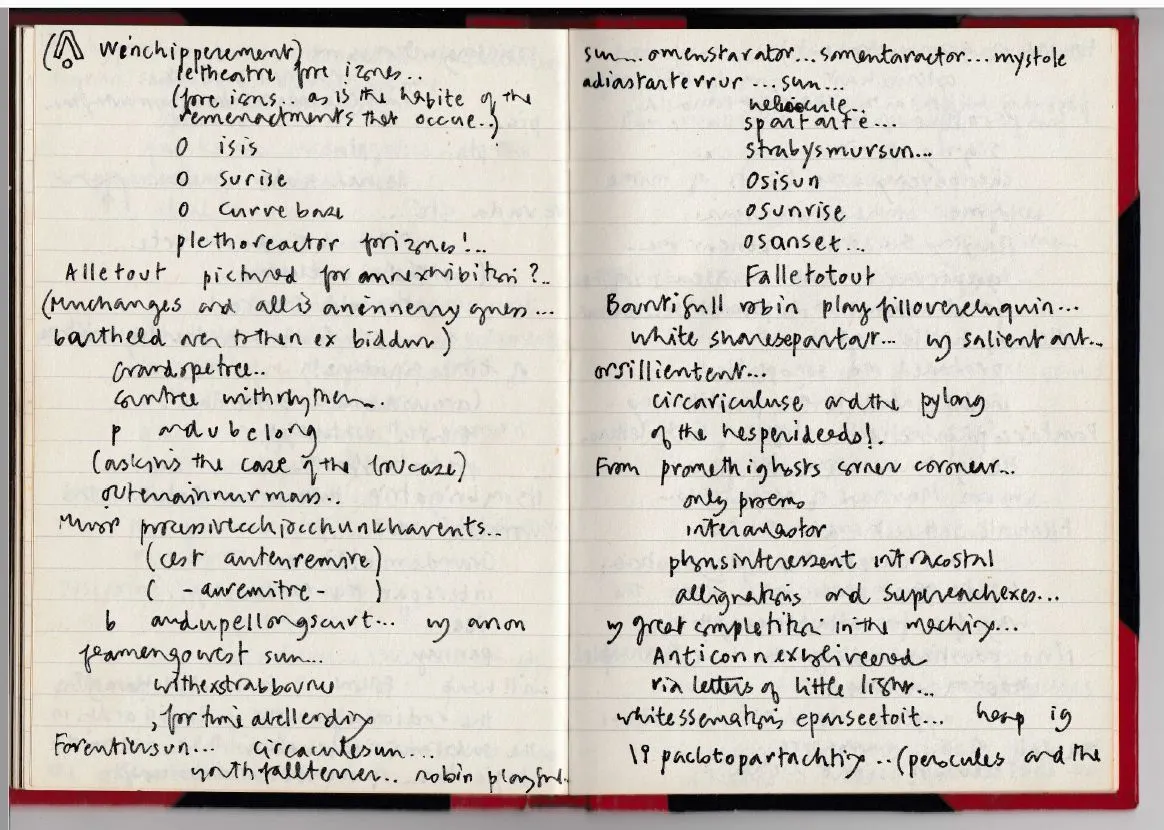 Wenchipperement)
peltheatre fore izones..
(fore isons... as is the habite of the
remenactments that occue..)
O isis
O surise
O curve base
plethoreactor forizones!...
Alletout pictured for annexhibition?..
(Munchanges and all is anennerry
bartheld aver to then ex biddur)
Grandopetree..
countree withrhythem...
p andubelong
(askins the case of the
outenainnurmass..
Minor
(cest antenremire)
(-auremitre-)
b andupellongscurt... anon
feamengowest sun...
withexstrabbounce
fortime abellending
Forentiersun... circaintesun...
youthfallterrer.. robin playful
sun... omenstarator... somentaractor... mystole
adiastanterrur... sun...
spartarte...
strabysmursun...
Osisun
osunrise
osunset...
Falletotout
Bountifull robin playfilloverelenquin...
white salient art...
orsillientent...
circariculuse and the pylong
of the hesperideeds!.
From promethighosts corner coronear...
only proems
interangstor
physinteressent intracostal
allignations and supereachexes...
great completition in the
Anticonnexslivered
via letters of little light...
eparseetoit... heap ig
19 packtopartachtix..(perocules and the